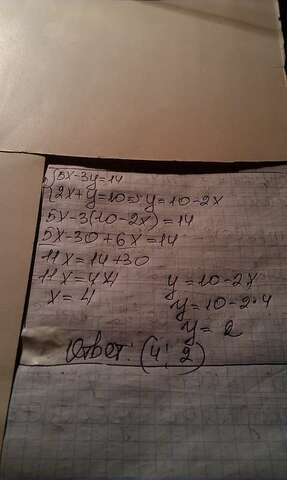 {5x-3y=14
{2x+y=10=>y=10-2x
5x-3(10-2x)=14
5x-30+6x=14
11x=14+30
11x=44
x=4
y=10-2x
y=10-2·4
y=2
Ответ: (4; 2)